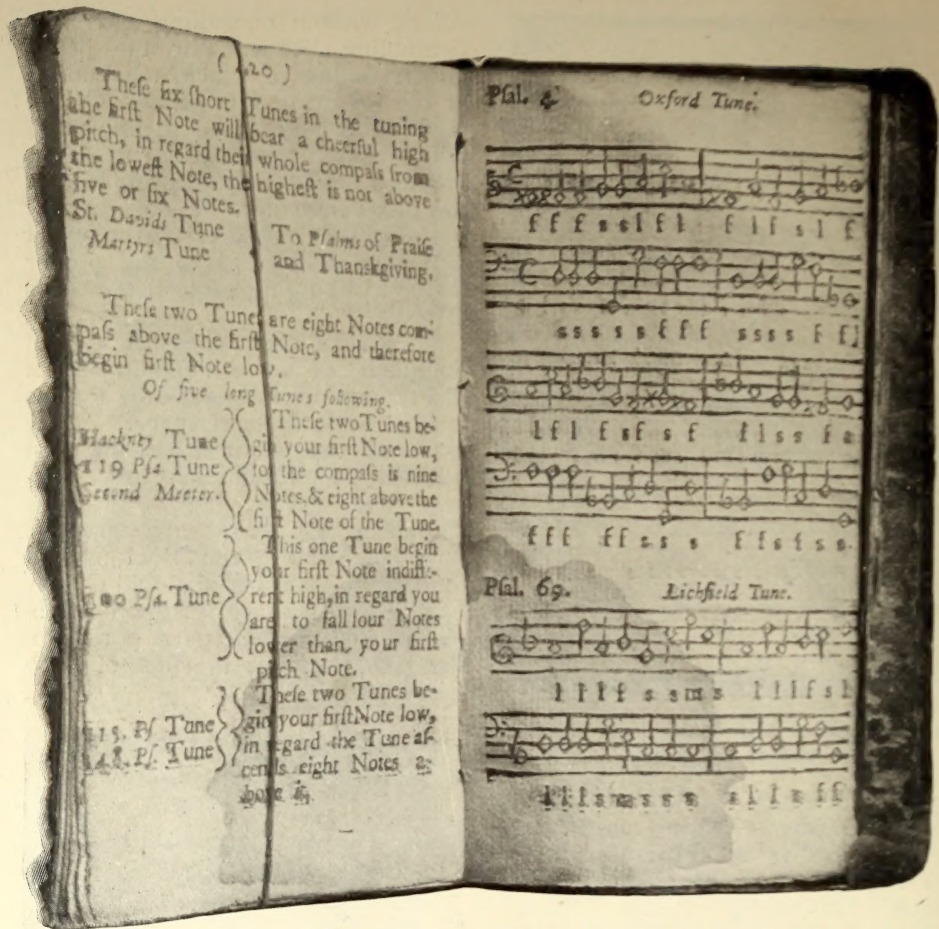 ( 420 )
Theſe ſix ſhort Tunes in the tuning
the firſt Note will bear a cheerful high
pitch, in regard their whole compaſs from
the loweſt Note, the higheſt is not above
five or ſix Notes.
St. Davids Tune
Martyrs Tune
To Pſalms of Praiſe
and Thanskgiving,
Theſe two Tunes are eight Notes com-
paſs above the firſt Note, and therefore
begin firſt Note low.
Of five long Tunes following.
Hackney Tune
119 Pſa. Tune
Second Meeter.
Theſe two Tunes be-
gin your firſt Note low,
for the compaſs is nine
Notes. & eight above the
firſt Note of the Tune.
100 Pſa. Tune
This one Tune begin
your firſt Note indiffe-
rent high, in regard you
are to fall four Notes
lower than your firſt
pitch Note.
Pſ. Tune
148. Pſ. Tune
Theſe two Tunes be-
gin your firſt Note low,
in regard the Tune aſ-
cends eight Notes a-
bove it.
Pſal. 4 Oxford Tune.
f f f s s l f l f l f s l f
s s s s s f f f s s s s f f
l f l f s f s f f l s s f
f f f f f s s s f f s f s s.
Pſal. 69. Lichfield Tune.
l l l f s s m s l l l f s l